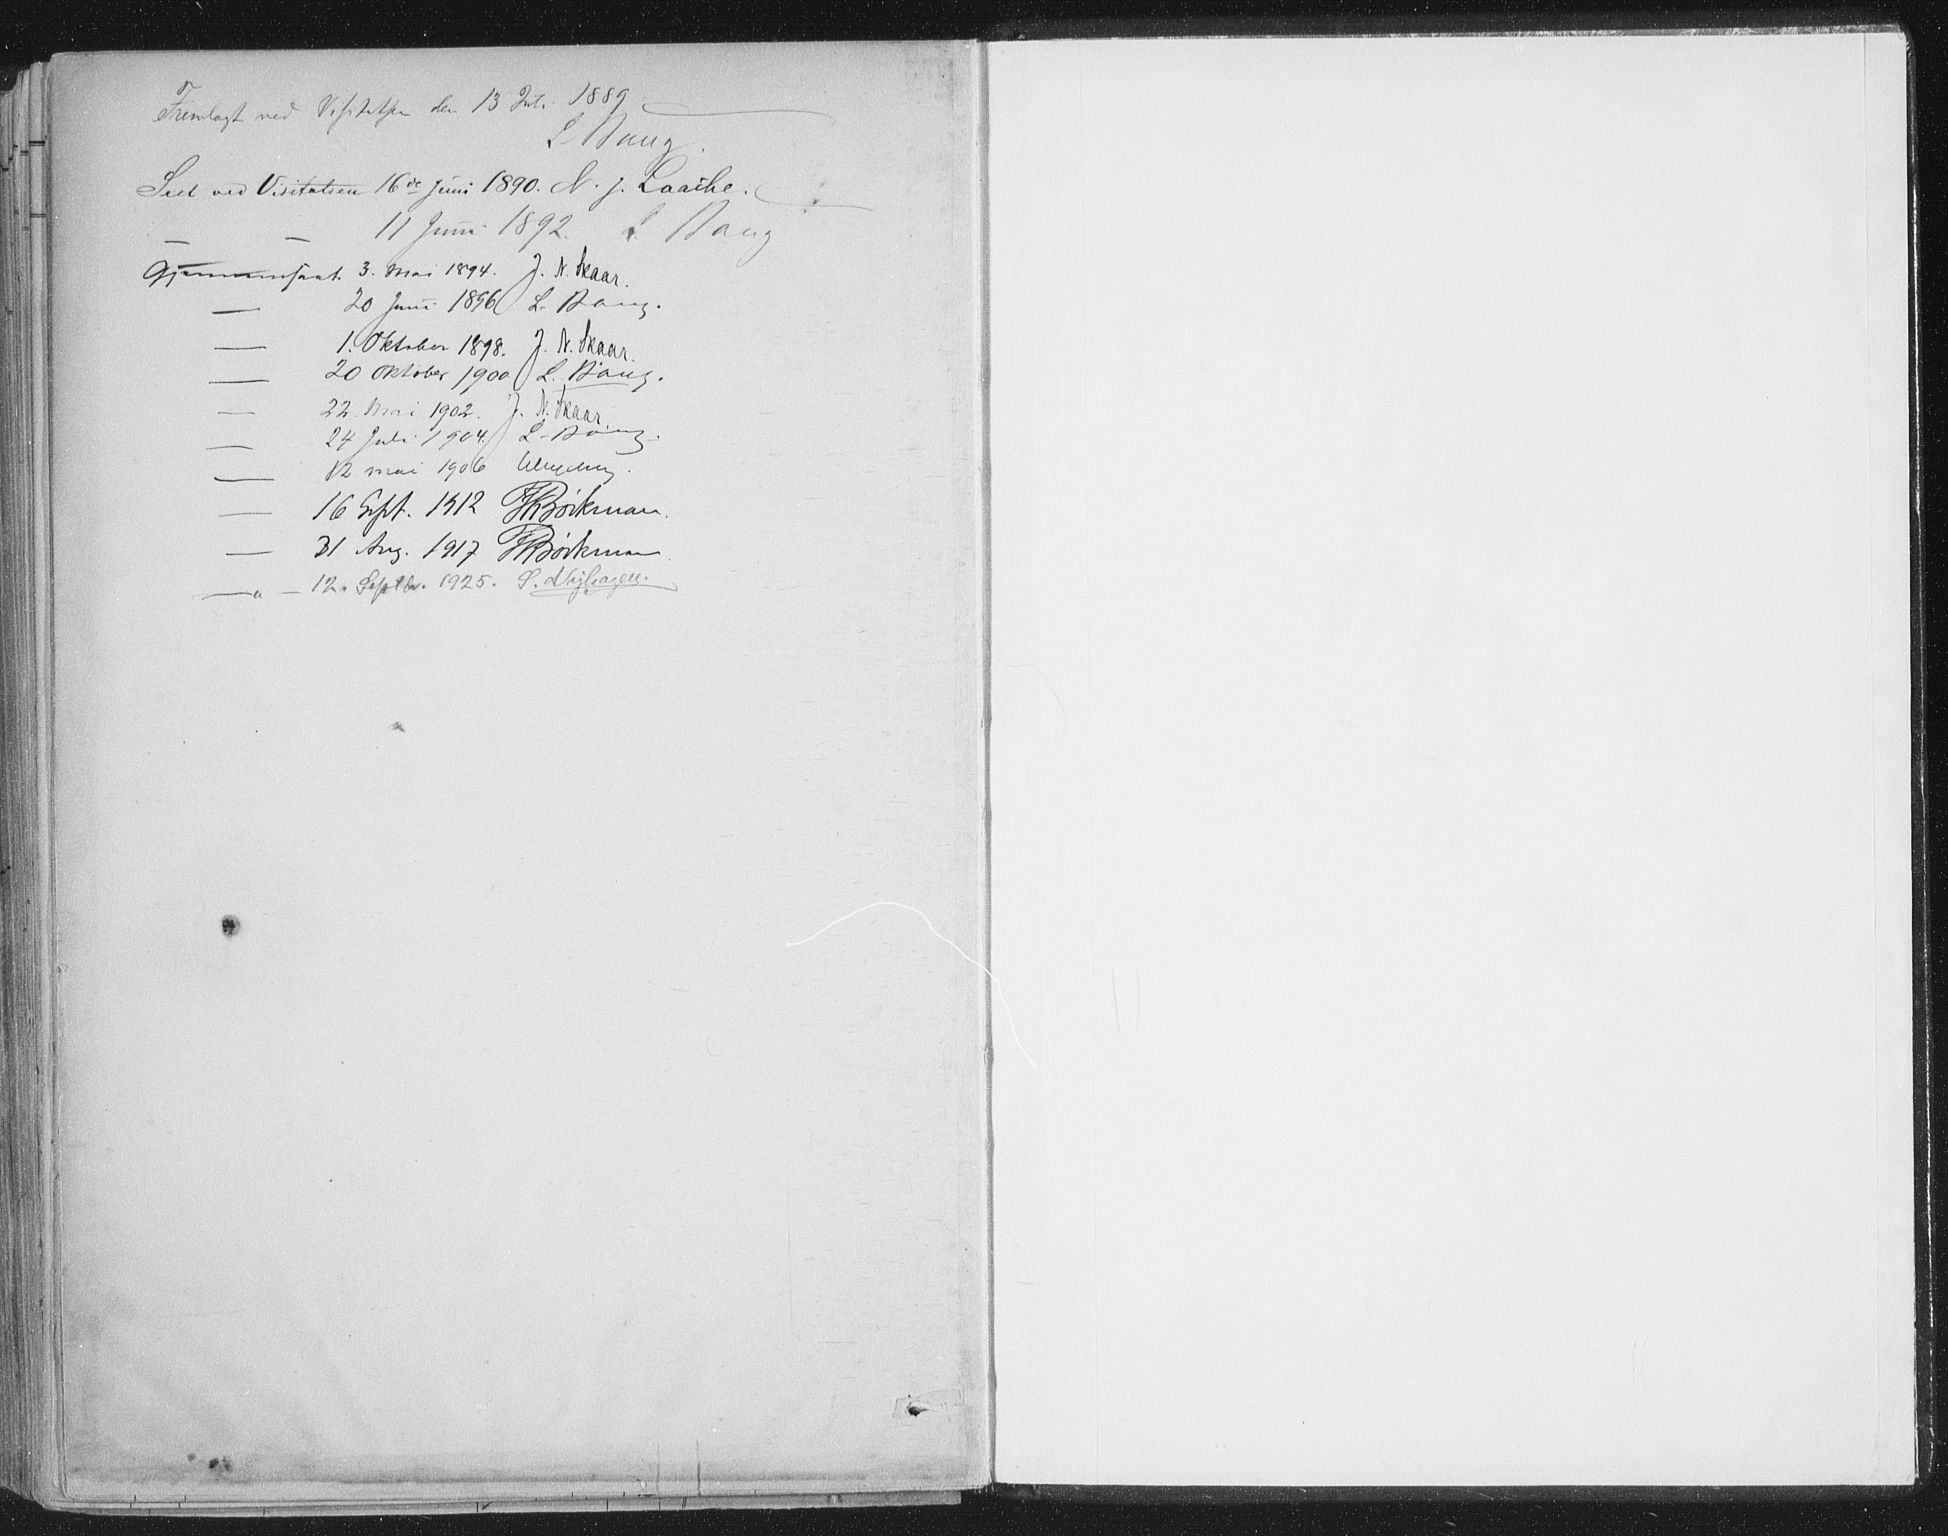 Fremlagt ved Visitatsen den 13 Juli 1889
L Bang.
Seet ved Visitatsen 16de Juni 1890. N. J. Laache.
— — 11 Juni 1892. L. Bang
Gjennemseet. 3. Mai 1894. J. N. Skaar.
— 20 Juni 1896 L. Bang.
— 1. Oktober 1898. J. N. Skaar.
— 20 Oktober 1900 L. Bang.
— 22. Mai 1902. J. N. Skaar
— 24 Juli 1904. L. Bang.
— 12 mai 1906
— 16 Sept. 1912 Bøckman.
— 31 Aug. 1917 Bøckman
— " — 12. Septbr. 1925.